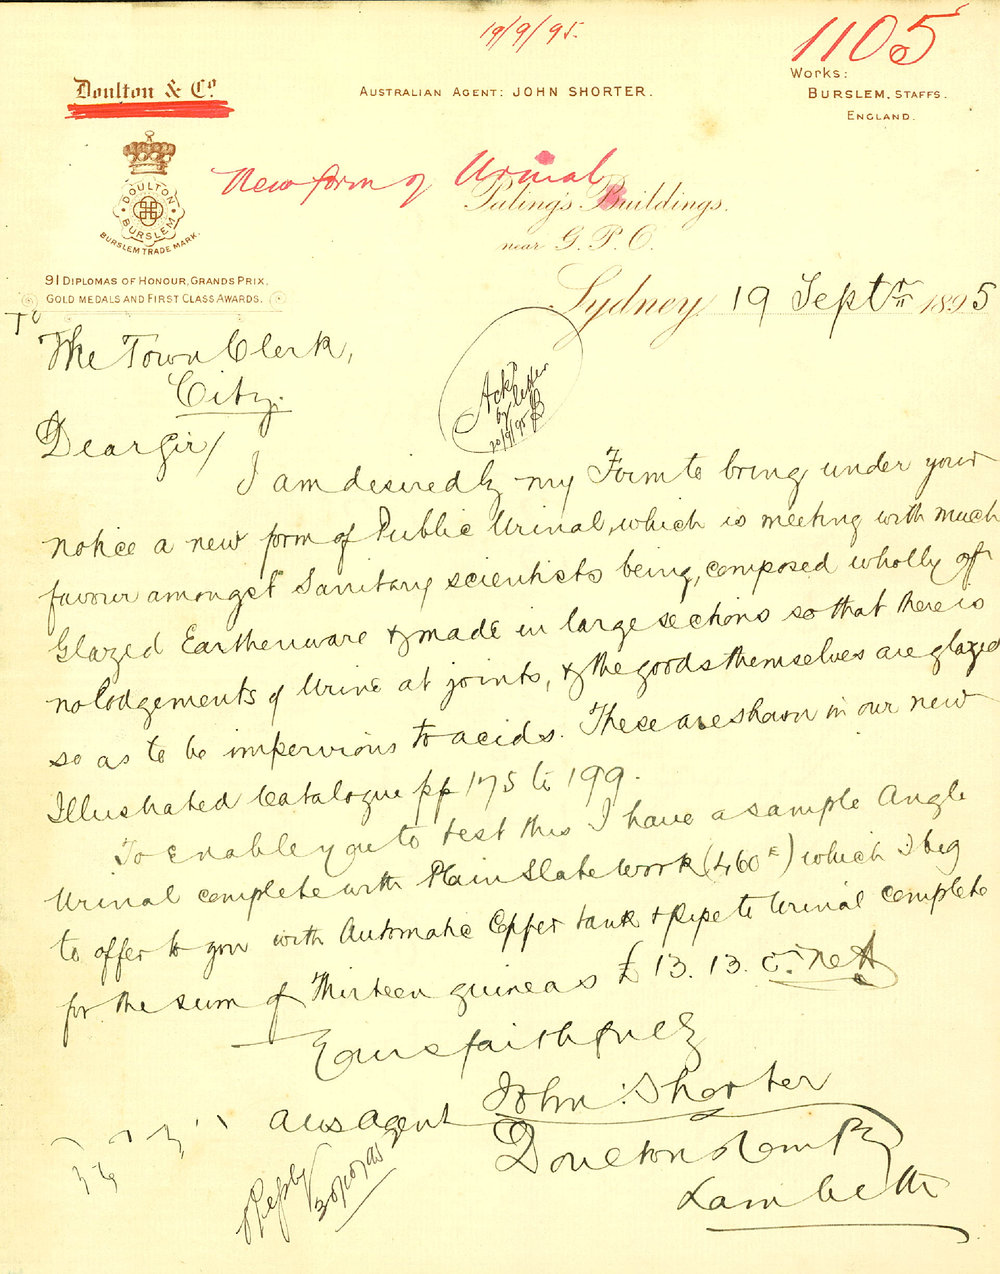 19/9/95.
1105
Doulton & Co.
Australian Agent: John Shorter.
Works:
Burslem, Staffs.
England.
New form of Urinal
Paling's Buildings.
near G. P. O.
DOULTON
BURSLEM
BURSLEM TRADE MARK.
91 Diplomas of Honour, Grands Prix,
Gold Medals and First Class Awards.
Sydney 19 Septr 1895
To
The Town Clerk,
City.
Ackd
by letter
20/9/95
Dear Sir/
I am desired by my Firm to bring under your
notice a new form of Public Urinal, which is meeting with much
favour amongst Sanitary scientists being, composed wholly of
Glazed Earthenware & made in large sections so that there is
no lodgements of Urine at joints, & the goods themselves are glazed
so as to be impervious to acids. These are shown in our new
Illustrated Catalogue pp 175 to 199.
To Enable you to test this I have a sample Angle
Urinal complete with Plain Slate work (460E) which I beg
to offer to you with Automatic Copper tank & pipe to Urinal complete
for the sum of Thirteen guineas £13.13.0. nett
Yours faithfully
John Shorter
Aus Agent
Doulton & Compy
Lambeth
Reply